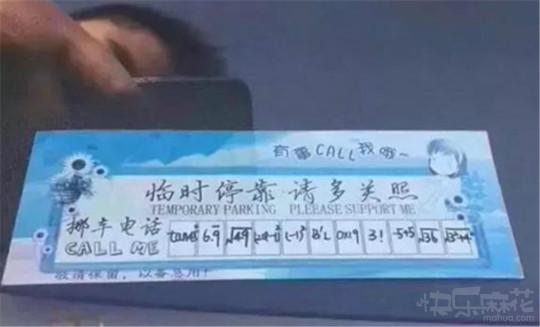 有事CALL我哦~
临时停靠 请多关照
TEMPORARY PARKING PLEEASE SUPPORT ME
挪车电话
CALL ME
tan45° 6.9̄ √49 (-1)² 0x19 3! -5+5 √36 √3²+4²
敬请保留，以备急用！
快乐麻花
mahua.com